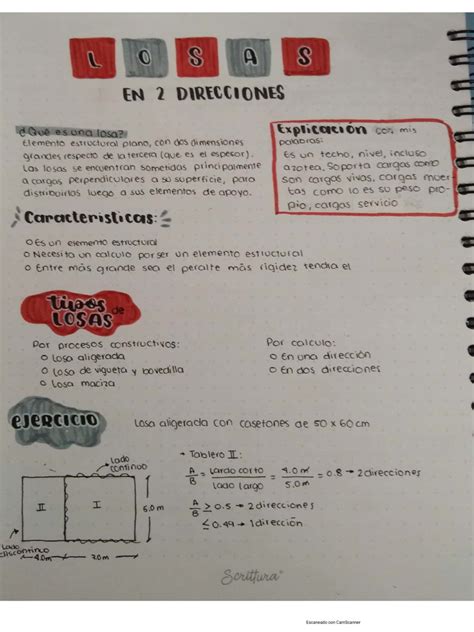 LOSAS
EN 2 DIRECCIONES
¿Qué es una losa?
Elemento estructural plano, con dos dimensiones
grandes respecto de la tercera (que es el espesor).
Las losas se encuentran sometidas principalmente
a cargas perpendiculares a su superficie, para
distribuirlos luego a sus elementos de apoyo.
Explicación con mis
palabras:
Es un techo, nivel, incluso
azotea. Soporta cargas como
son cargas vivas, cargas muer-
tas como lo es su peso pro-
pio, cargas servicio
Características:
o Es un elemento estructural
o Necesita un calculo por ser un elemento estructural
o Entre más grande sea el peralte más rigidez tendra el
tipos de
LOSAS
Por procesos constructivos:
o Losa aligerada
o Losa de vigueta y bovedilla
o Losa maciza
Por calculo:
o En una dirección
o En dos direcciones
EJERCICIO
Losa aligerada con casetones de 50 x 60 cm
Lado
continuo
II
I
5.0 m
Lado
discontinuo
4.0m
3.0m
• Tablero II:
A/B = Lardo corto / Lado largo = 4.0 m / 5.0 m = 0.8 → 2 direcciones
A/B ≥ 0.5 → 2 direcciones
≤ 0.49 → 1 dirección
Scrittura
Escaneado con CamScanner